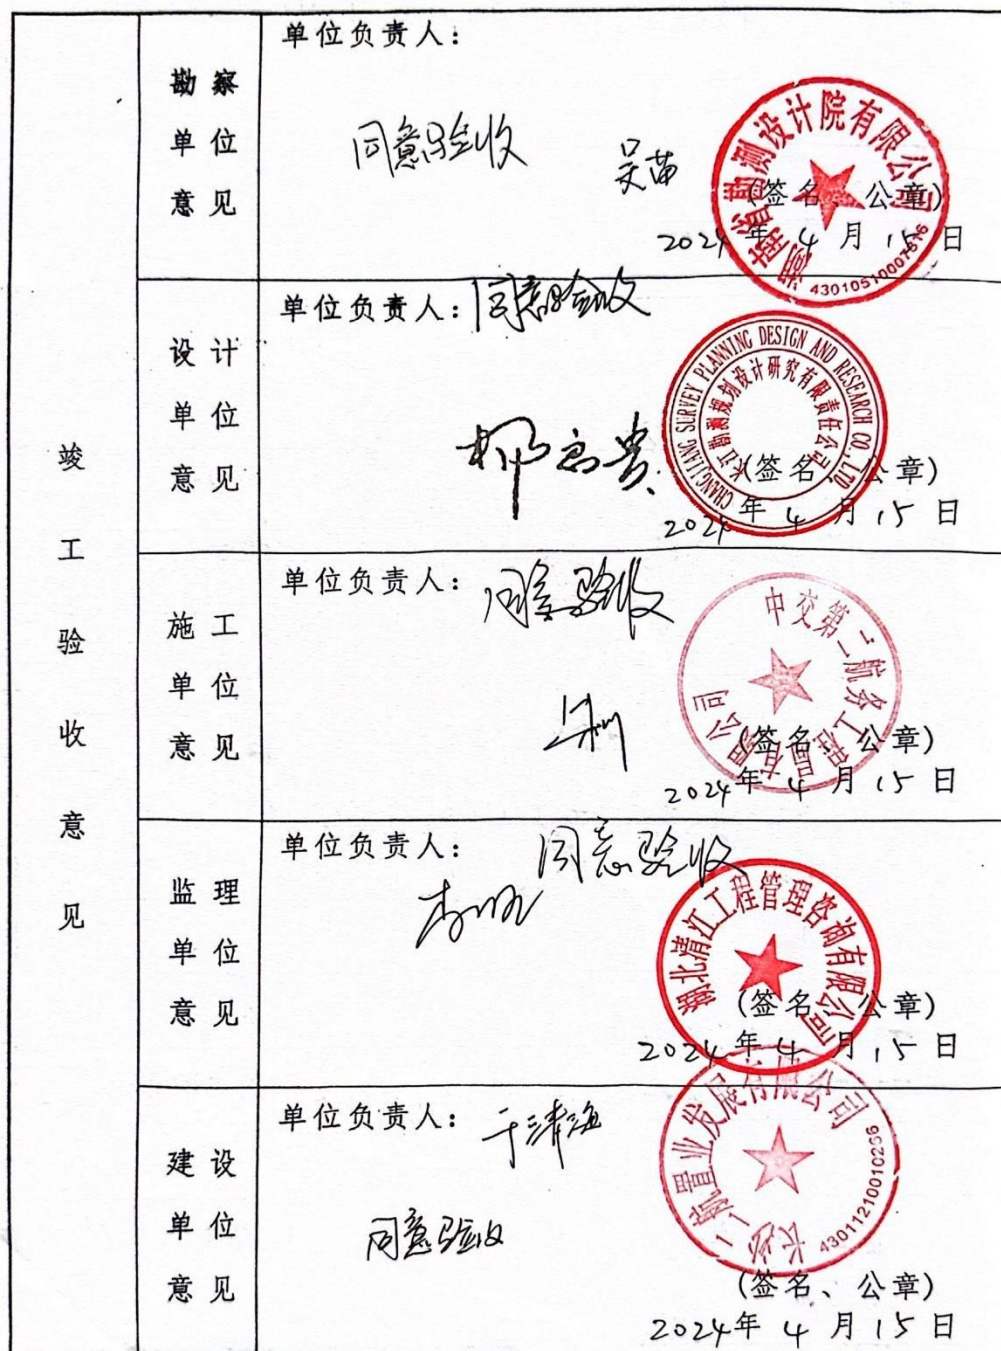 竣工验收意见
勘察单位意见
单位负责人：
同意验收
吴苗
湖南省勘测设计院有限公司
43010510007616
(签名、公章)
2024年 4 月 15 日
设计单位意见
单位负责人：同意验收
CHANGJIANG SURVEY PLANNING DESIGN AND RESEARCH CO., LTD
长江勘测规划设计研究有限责任公司
(签名、公章)
2024年 4 月 15 日
施工单位意见
单位负责人：同意验收
中交第二航务工程局有限公司
(签名、公章)
2024年 4 月 15 日
监理单位意见
单位负责人：同意验收
湖北清江工程管理咨询有限公司
(签名、公章)
2024年 4 月 15 日
建设单位意见
单位负责人：于清海
同意验收
长沙二航置业发展有限公司
(签名、公章)
2024年 4 月 15 日